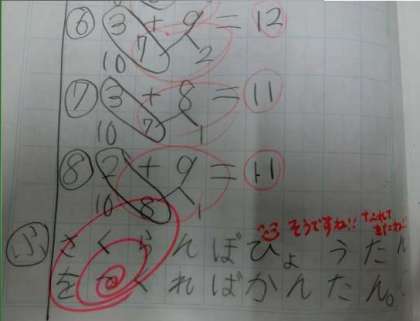 ⑥ 3 + 9 = 12
7 2
10
⑦ 3 + 8 = 11
10 7 1
⑧ 2 + 9 = 11
10 8 1
そうですね!!
ふ さくらんぼひょうたん
をつくればかんたん。